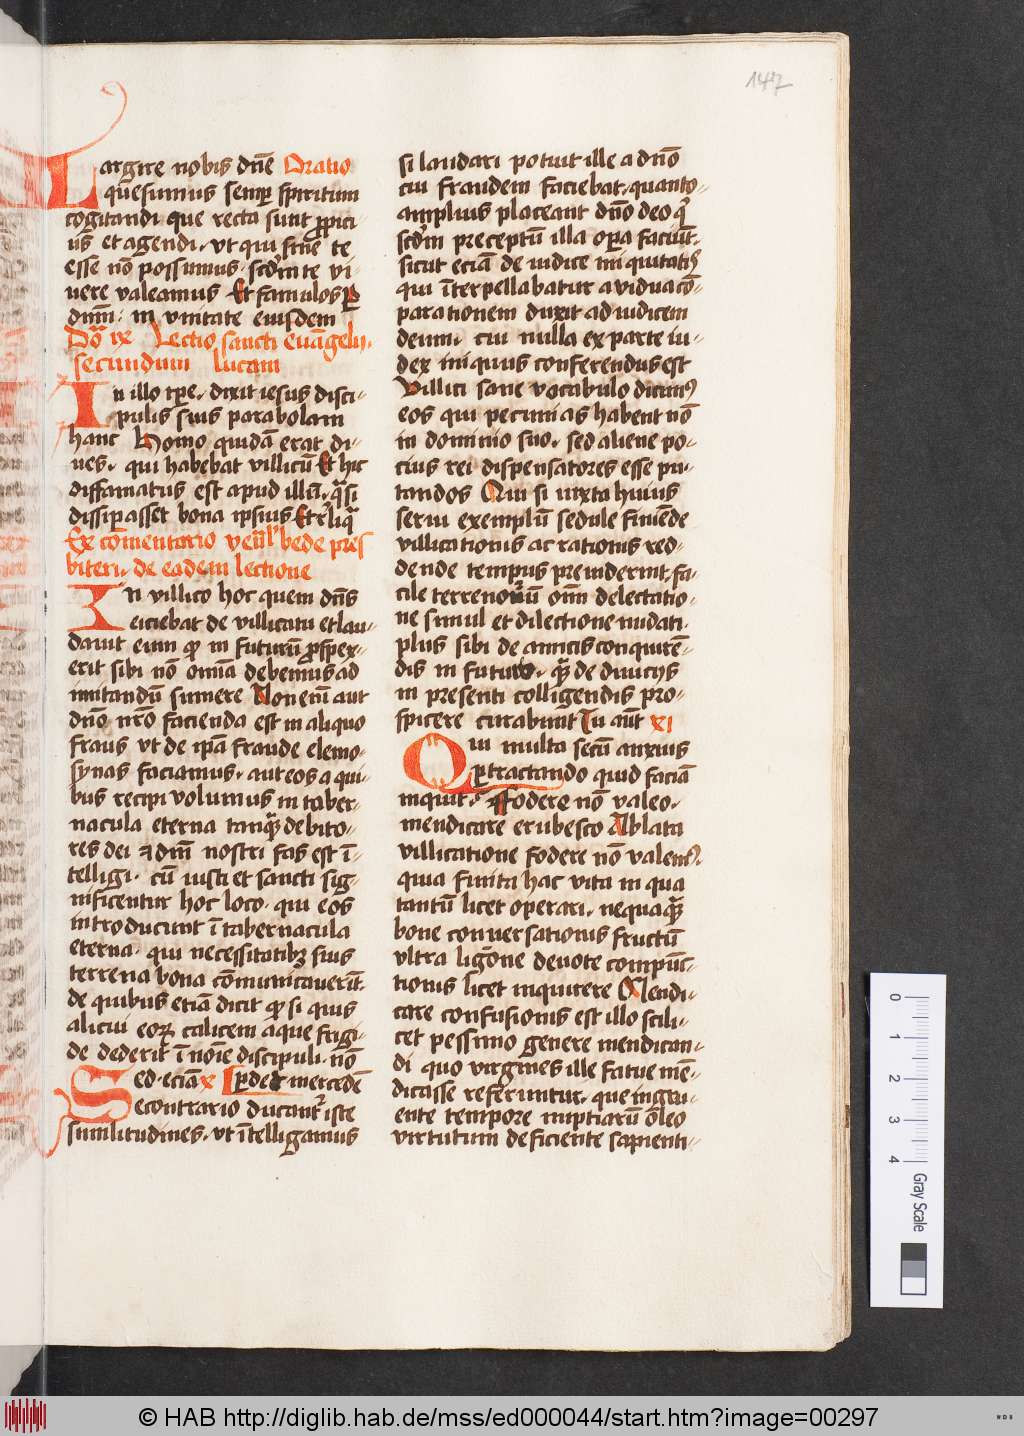 147
Largire nobis dn̄e Oratio
quesumus semꝑ spiritum
cogitandi que recta sunt ꝓpici-
us et agendi. vt qui sine te
esse nō possumus. scd̄m te vi-
uere valeamus Et famulos ꝑ
dnm̄. in vnitate eiusdem
Dō ix Lectio sancti euāgelij.
secundum lucam
In illo tpe. dixit iesus disci-
pulis suis parabolam
hanc Homo quidā erat di-
ues. qui habebat villicū Et hic
diffamatus est apud illū. qͣsi
dissipasset bona ipsius Et rͥliqͣ
Ex cōmentario venͥlʼ bede pres
biteri. de eadem lectione
In villico hoc quem dn̄s
eiciebat de villicatu et lau-
dauit eum qꝫ in futurū ꝓspex-
erit sibi nō omnia debemus ad
imitandū sumere Non enī aut
dn̄o nr̄o facienda est in aliquo
fraus vt de ip̄a fraude elemo-
synas faciamus. aut eos a qui-
bus recipi volumus in taber-
nacula eterna tanqͣ debito-
res dei ⁊ dn̄i nostri fas est ī-
telligi. cū iusti et sancti sig-
nificentur hoc loco. qui eos
introducunt ī tabernacula
eterna. qui necessitatibꝫ suis
terrena bona cōmunicauerīt.
de quibus etiā dicit qꝫ si quis
alicui eoꝝ calicem aque frigi-
de dederit ī noīe discipuli. nō
Sed. eciā x ꝑdet mercedē
econtrario ducantʳ iste
similitudines. vt ītelligamus
si laudari potuit ille a dn̄o
cui fraudem faciebat. quanto-
amplius placeant dn̄o deo qͥ
scd̄m preceptū illa oꝑa faciūt.
sicut eciā de iudice iniquitatis
qui īterpellabatur a vidua cō-
parationem duxit ad iudicem
deum. cui nulla ex parte iu-
dex iniquus conferendus est
Villici sane vocabulo dicimus
eos qui pecunias habent nō
in dominio suo. sed aliene po-
cius rei dispensatores esse pu-
tandos Qui si iuxta huius
serui exemplū sedule finiēde
villicationis ac rationis red-
dende tempus preuiderint. fa-
cile terrenoꝝ om̄ delectatio-
ne simul et dilectione nudati.
plus sibi de amicis conquirē-
dis in futuro. qͣ de diuicijs
in presenti colligendis pro-
spicere curabunt Tu aūt xi
Qui multa secū anxius
ꝑtractando quid faciā
inquit. Fodere nō valeo.
mendicare erubesco Ablata
villicatione fodere nō valemus.
quia finita hac vita in qua
tantū licet operari. nequaqͣ
bone conuersationis fructū
vltra ligone deuote compūc-
tionis licet inquirere Mendi-
care confusionis est illo scili-
cet pessimo genere mendican-
di quo virgines ille fatue mē-
dicasse referuntur. que ingru-
ente tempore nuptiarū oleo
virtutum deficiente sapienti-
0
1
2
3
4
Gray Scale
© HAB http://diglib.hab.de/mss/ed000044/start.htm?image=00297